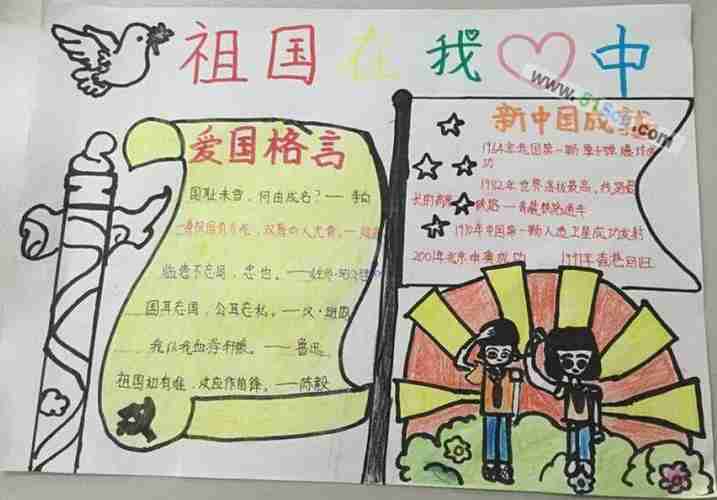 祖国在我心中
爱国格言
国耻未雪，何由成名？——李白
临患不忘国，忠也。——
国耳忘国，公耳忘私。——汉·
我以我血荐轩辕。——鲁迅
祖国如有难，汝应作前锋。——陈毅
新中国成
1964年我国第一颗原子弹爆炸成
功
1982年世界海拔最高、线路最
长的高原铁路——青藏铁路通车
1970年中国第一颗人造卫星成功发射
2001年北京申奥成功 1997年香港回归